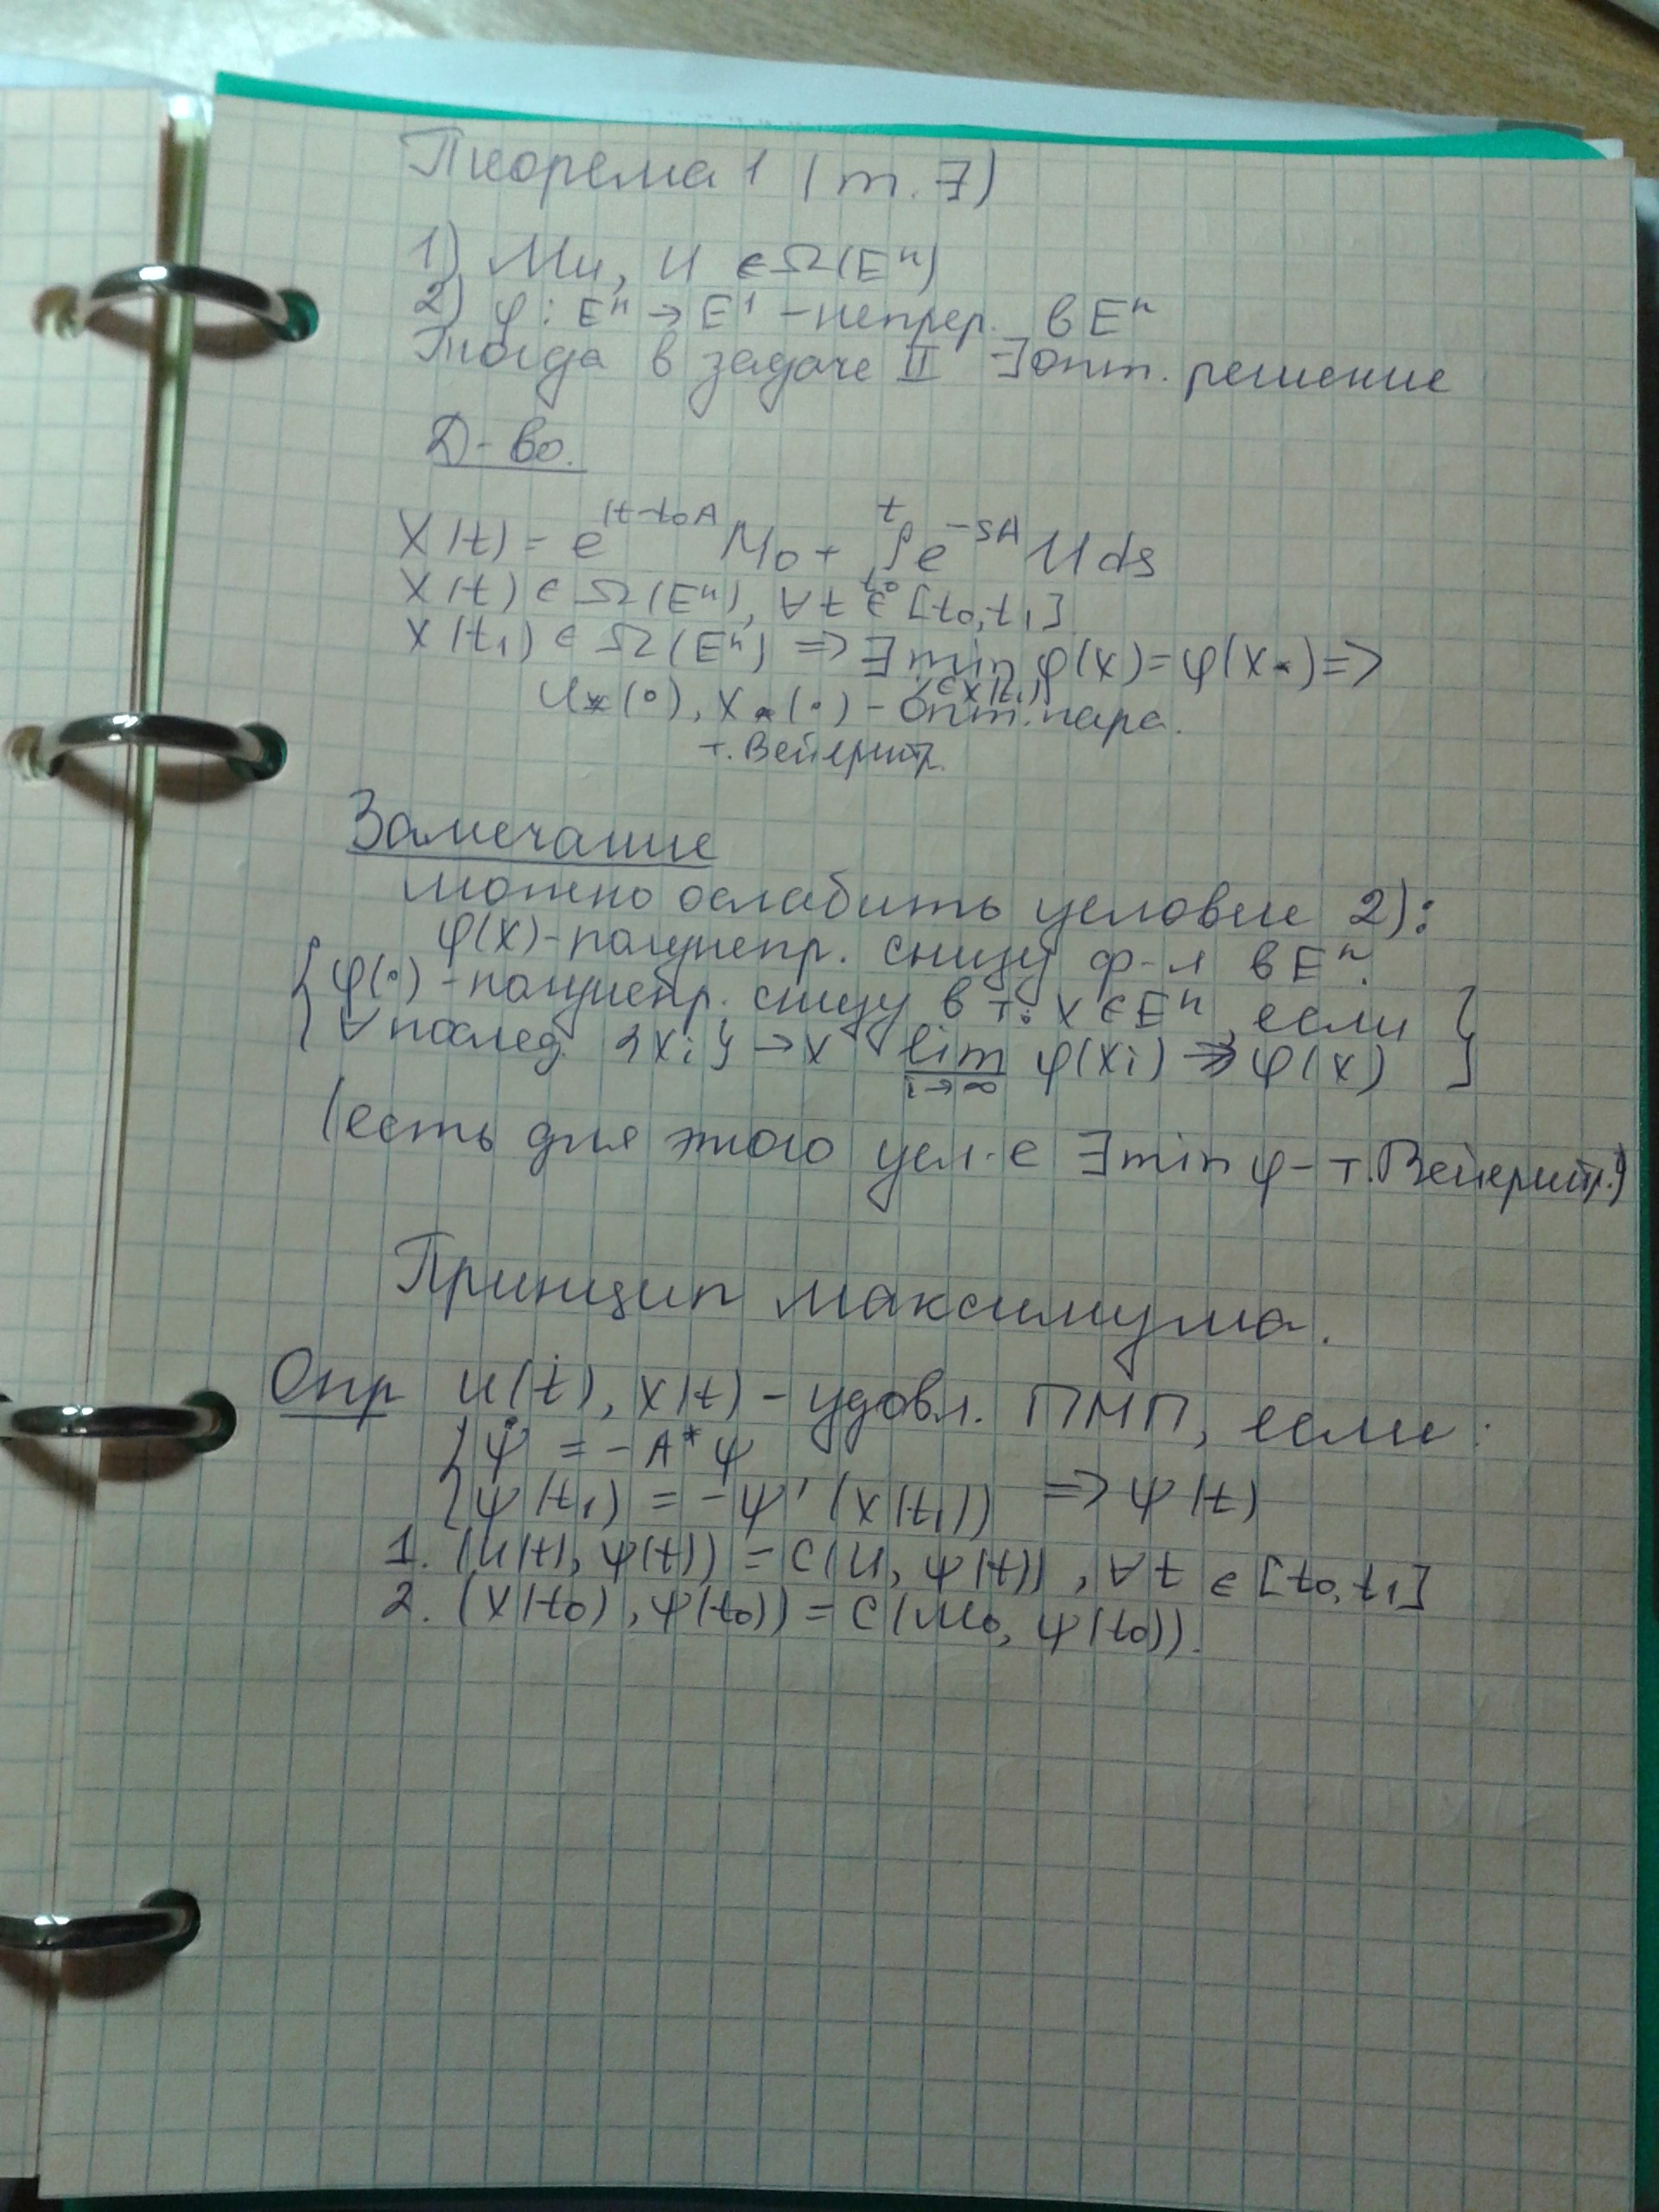 Теорема 1 (т. 7)
1) Mu, U ∈ Ω(Eⁿ)
2) φ : Eⁿ → E¹ – непрер. в Eⁿ
Тогда в задаче II ∃ опт. решение
Д-во.
X(t) = e^(t-t₀)A M₀ + ∫_{t₀}^{t} e^{-sA} U ds
X(t) ∈ Ω(Eⁿ), ∀ t ∈ [t₀, t₁]
X(t₁) ∈ Ω(Eⁿ) => ∃ min_{x∈X(t₁)} φ(x) = φ(x*) =>
u*(·), x*(·) – опт. пара.
т. Вейершт.
Замечание
можно ослабить условие 2):
φ(x) - полунепр. снизу ф-я в Eⁿ.
{ φ(·) - полунепр. снизу в т. x ∈ Eⁿ, если }
∀ послед. {xᵢ} → x lim_{i→∞} φ(xᵢ) ≥ φ(x)
(есть для этого усл. е ∃ min φ – т. Вейершт.)
Принцип максимума.
Опр u(t), x(t) – удовл. ПМП, если:
{ ψ̇ = - A* ψ
{ ψ(t₁) = - ψ' (x(t₁)) => ψ(t)
1. (u(t), ψ(t)) = C(U, ψ(t)), ∀ t ∈ [t₀, t₁]
2. (x(t₀), ψ(t₀)) = C(M₀, ψ(t₀)).